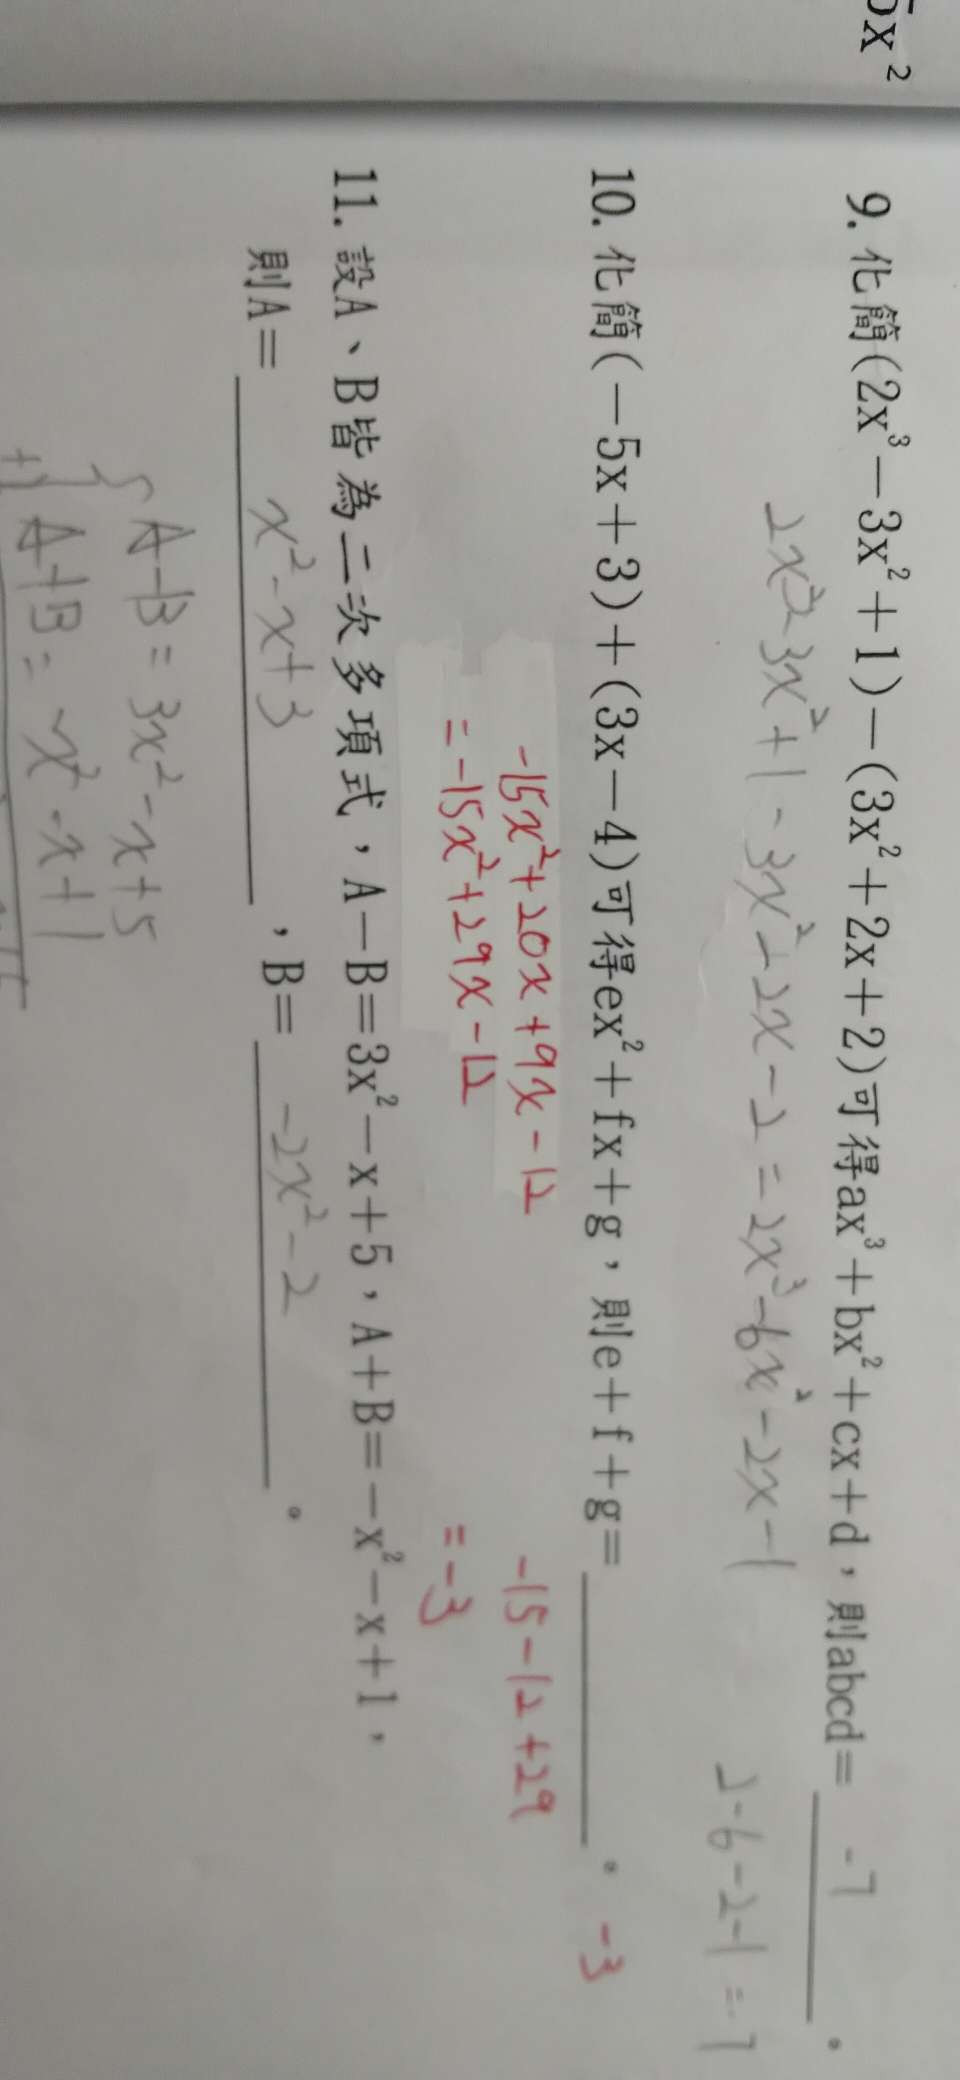 5x²
9. 化簡(2x³－3x²＋1)－(3x²＋2x＋2)可得ax³＋bx²＋cx＋d，則abcd＝ -7 。
2x² 3x²+1-3x²-2x-2=2x³-6x²-2x-1
2-6-2-1=-7
10. 化簡(－5x＋3)＋(3x－4)可得ex²＋fx＋g，則e＋f＋g＝ 。 -3
-15x²+20x+9x-12
-15-12+29
=-15x²+29x-12
=-3
11. 設A、B皆為二次多項式，A－B＝3x²－x＋5，A＋B＝－x²－x＋1，
則A＝ x²-x+3 ，B＝ -2x²-2 。
A-B=3x²-x+5
+) A+B=-x²-x+1